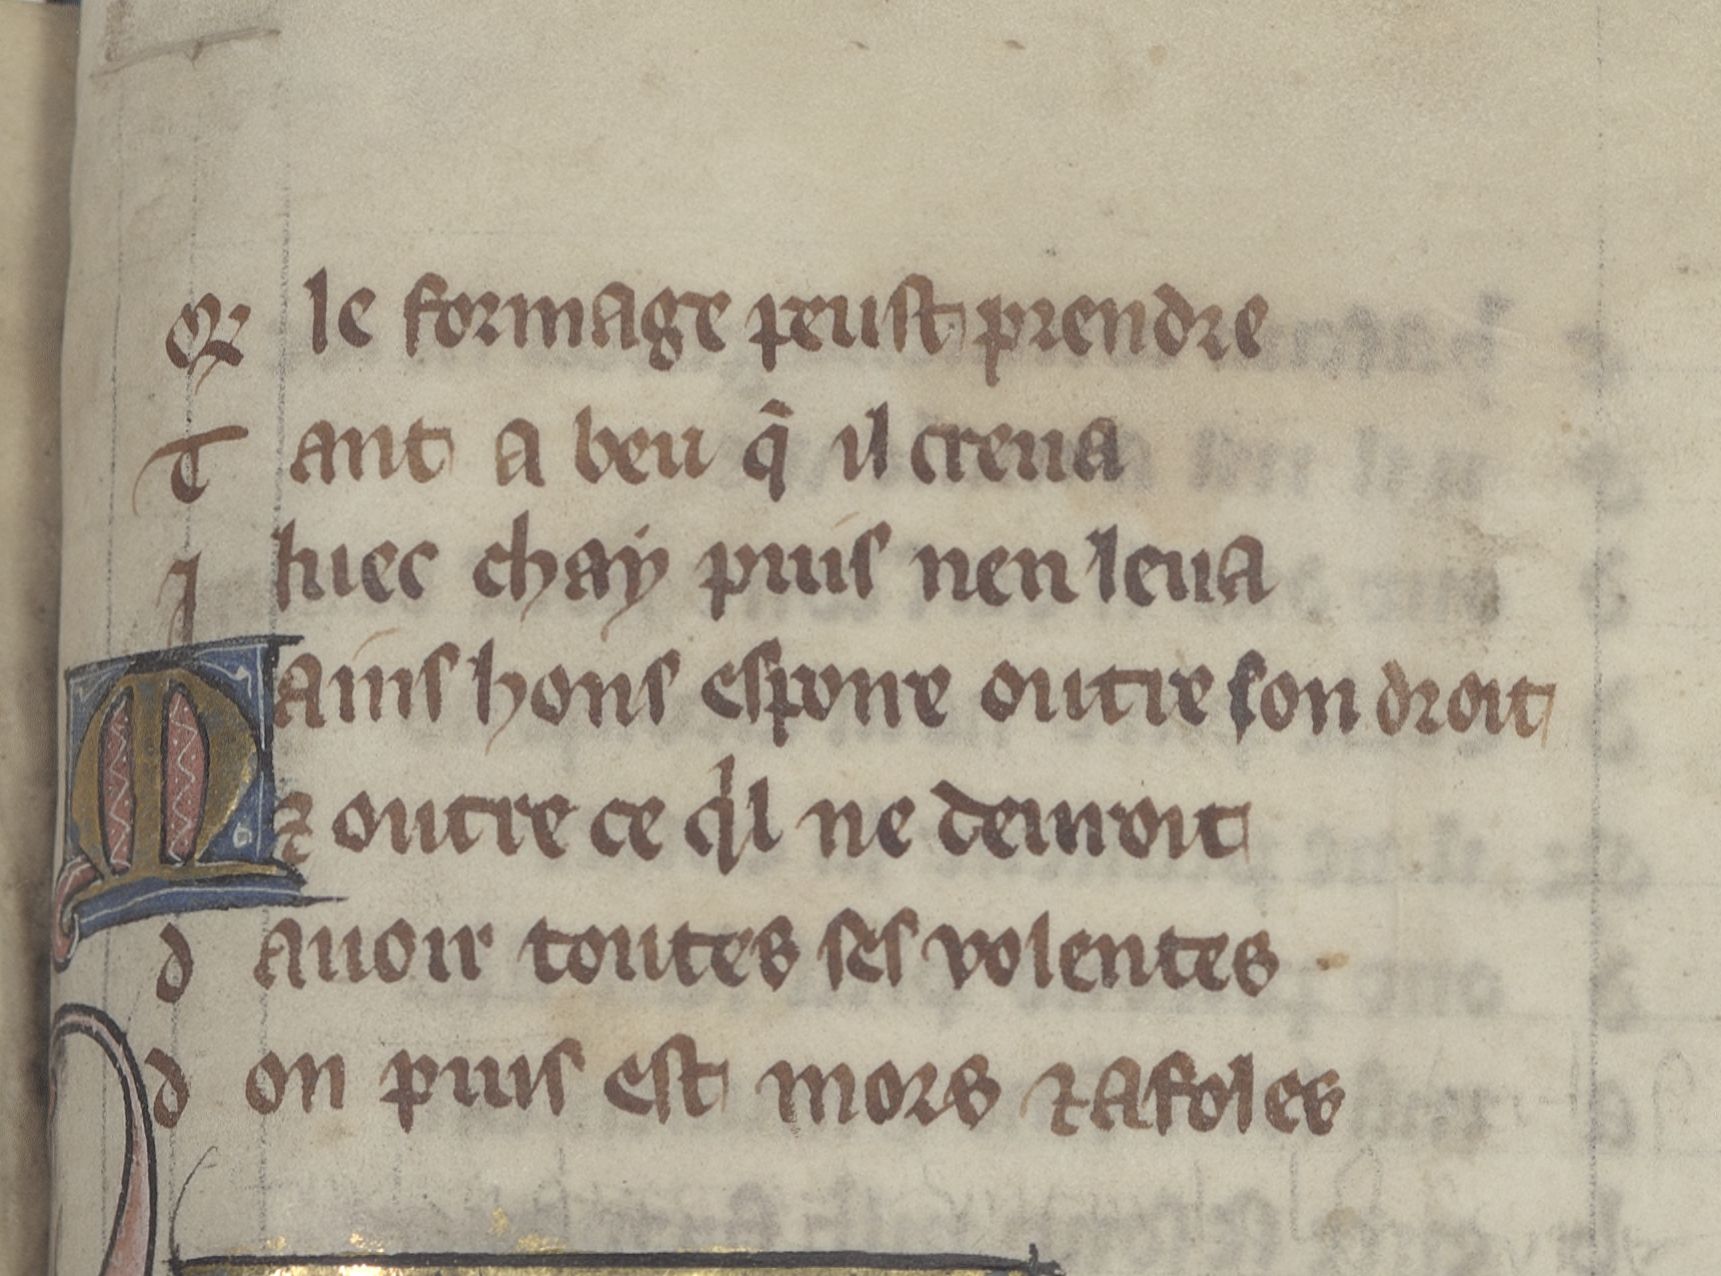 Q̃ le formage peust prendre
Tant a beu q̃ il creua
Iluec chaÿ puis nen leua
Mains hons espoire outre son droit
⁊ outre ce qͥl ne deuroit
dauoir toutes ses volentes
don puis est mors ⁊ afoles